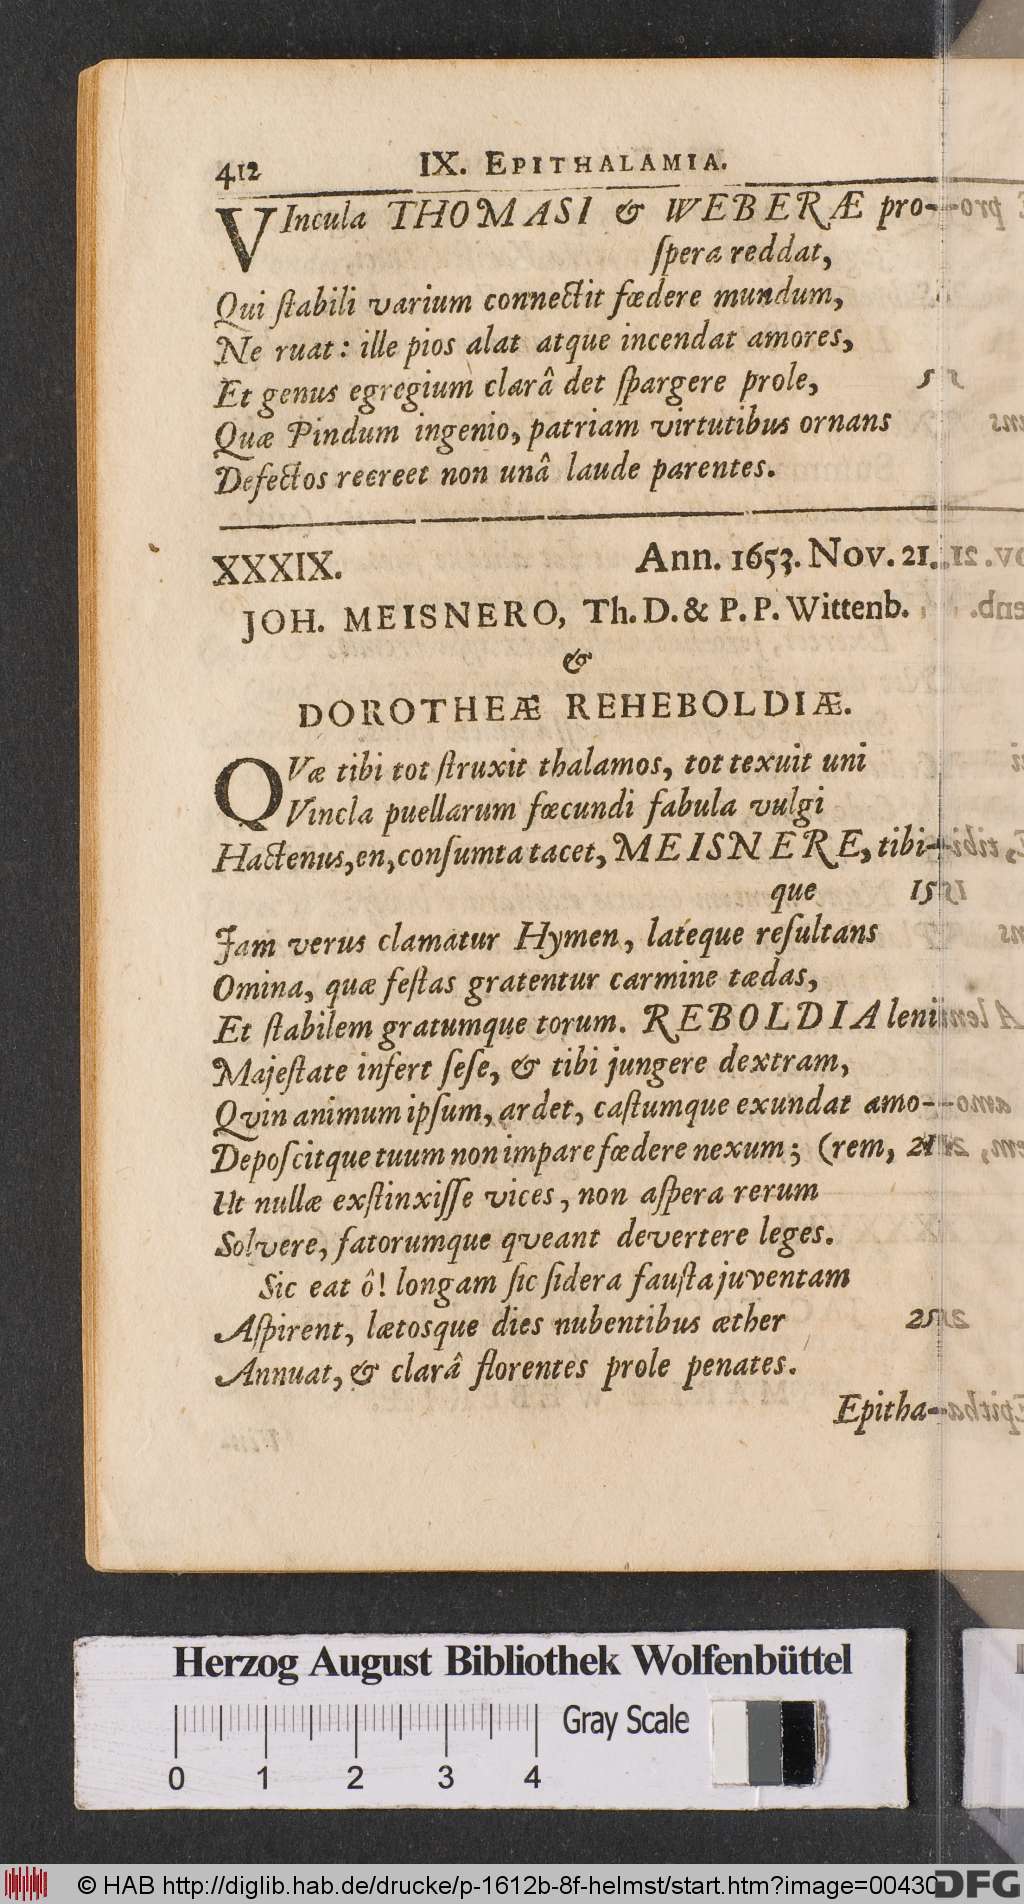 412 IX. EPITHALAMIA.
VIncula THOMASI & WEBERÆ pro-
ſpera reddat,
Qui ſtabili varium connectit fœdere mundum,
Ne ruat: ille pios alat atque incendat amores,
Et genus egregium clarâ det ſpargere prole,
Quæ Pindum ingenio, patriam virtutibus ornans
Defectos recreet non unâ laude parentes.
XXXIX. Ann. 1653. Nov. 21.
JOH. MEISNERO, Th. D. & P. P. Wittenb.
&
DOROTHEÆ REHEBOLDIÆ.
QVæ tibi tot ſtruxit thalamos, tot texuit uni
Vincla puellarum fœcundi fabula vulgi
Hactenus, en, conſumta tacet, MEISNERE, tibi-
que
Jam verus clamatur Hymen, latéque reſultans
Omina, quæ feſtas gratentur carmine tædas,
Et ſtabilem gratumque torum. REBOLDIA leni
Majeſtate infert ſeſe, & tibi jungere dextram,
Qvin animum ipſum, ardet, caſtumque exundat amo-
Depoſcitque tuum non impare fœdere nexum; (rem,
Ut nullæ exſtinxiſſe vices, non aſpera rerum
Solvere, fatorumque qveant devertere leges.
Sic eat ô! longam ſic ſidera fauſta juventam
Aſpirent, lætosque dies nubentibus æther
Annuat, & clarâ florentes prole penates.
Epitha-
Herzog August Bibliothek Wolfenbüttel
Gray Scale
0 1 2 3 4
© HAB http://diglib.hab.de/drucke/p-1612b-8f-helmst/start.htm?image=00430
DFG